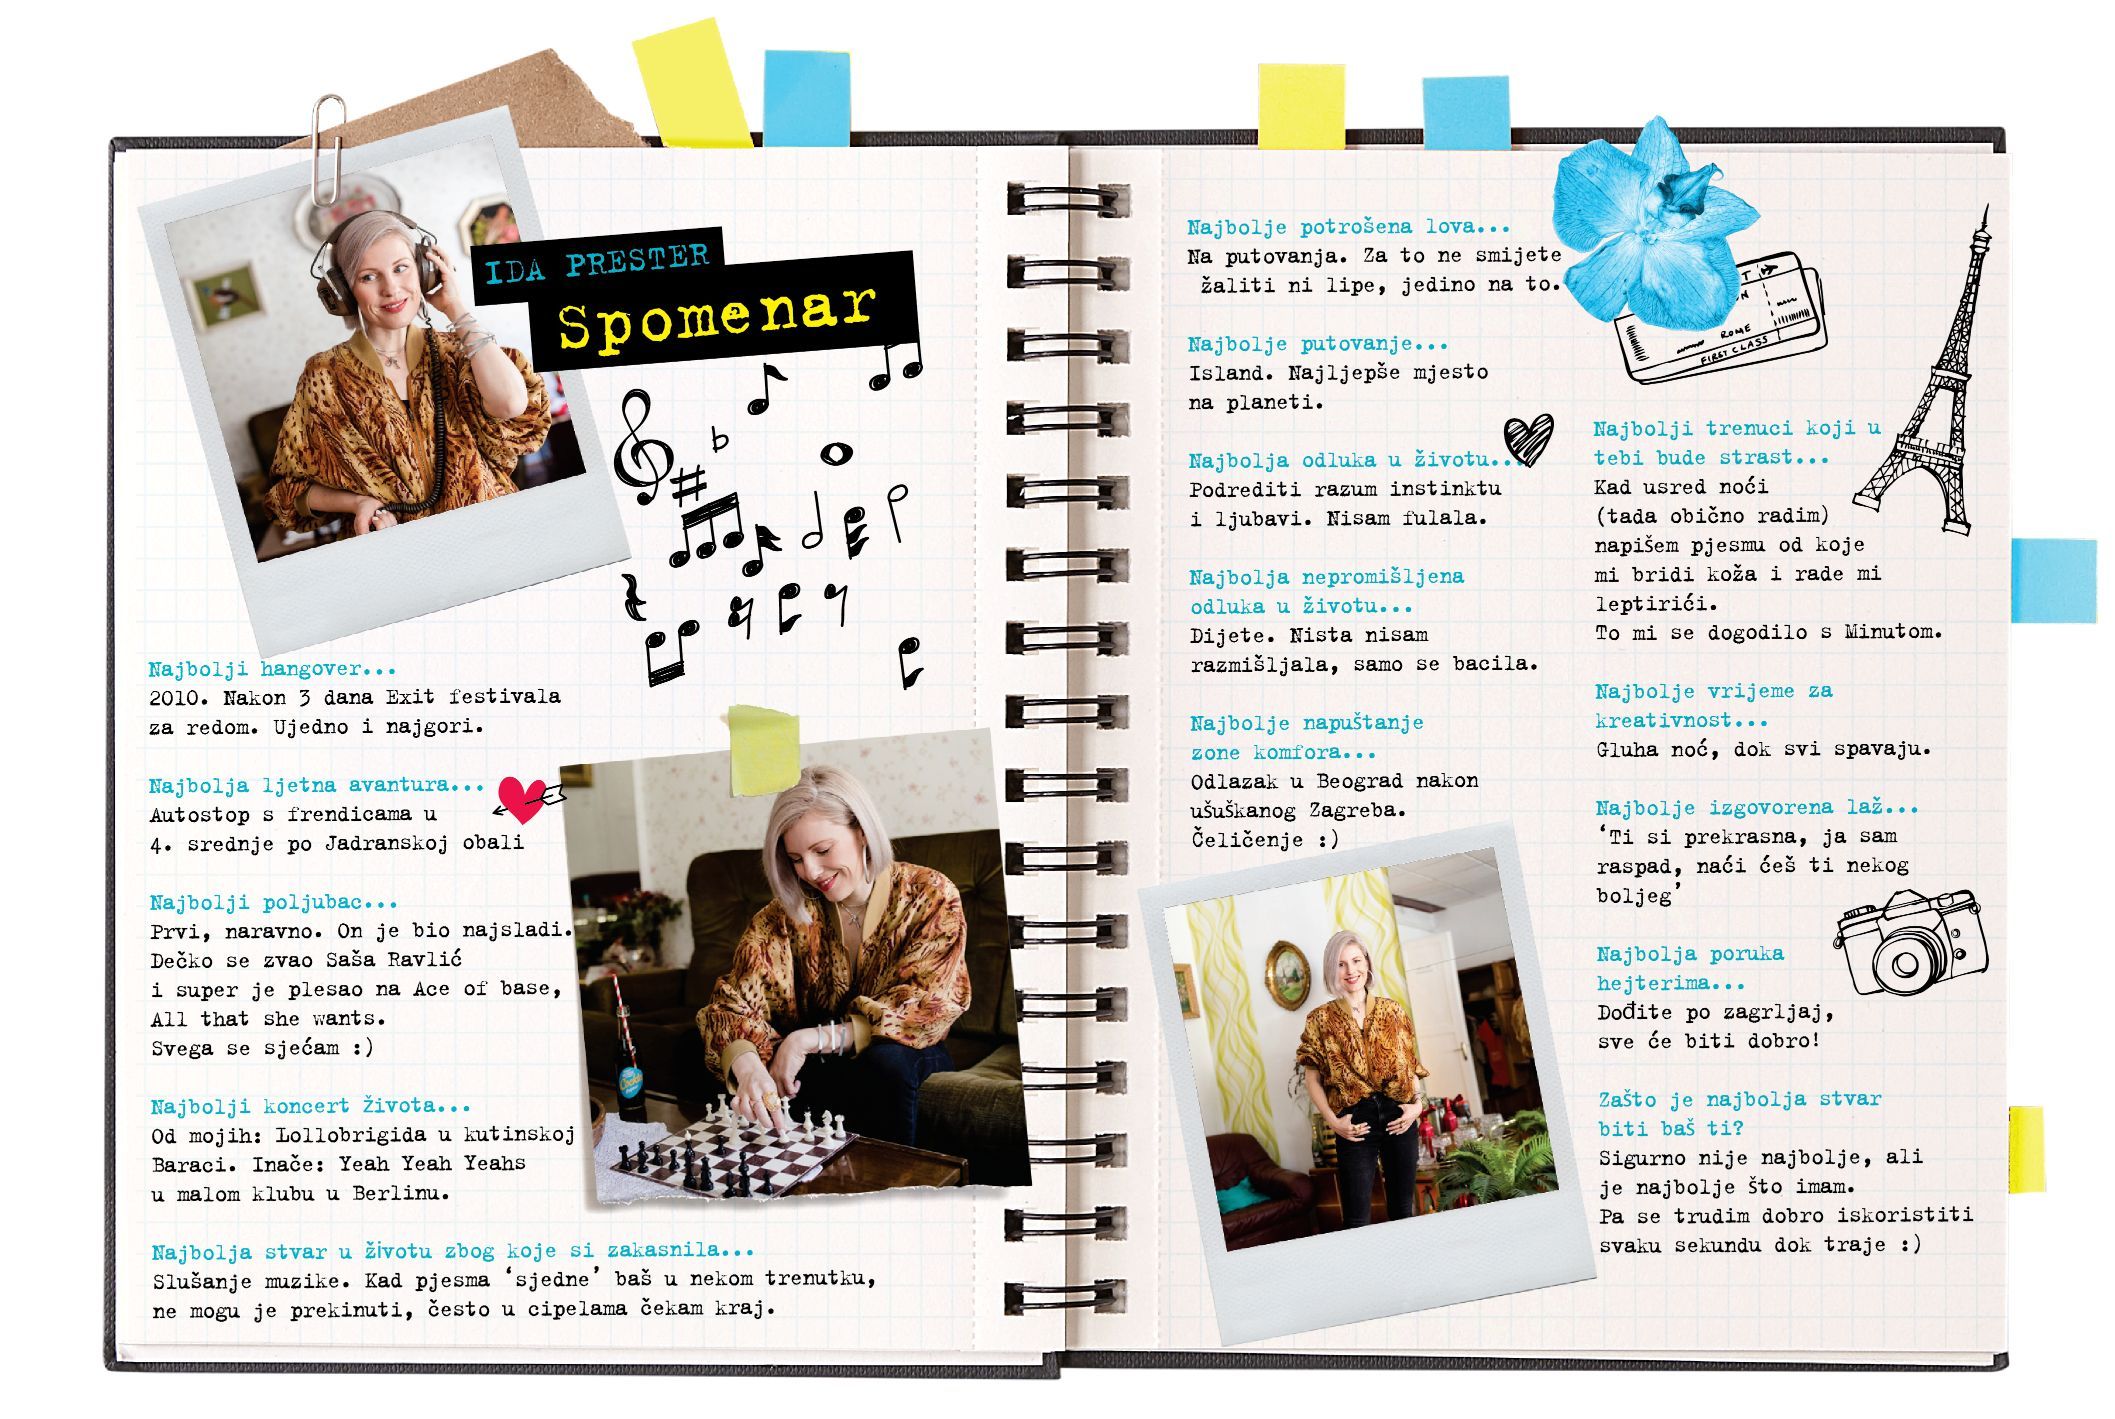 IDA PRESTER
Spomenar
Najbolji hangover...
2010. Nakon 3 dana Exit festivala
za redom. Ujedno i najgori.
Najbolja ljetna avantura...
Autostop s frendicama u
4. srednje po Jadranskoj obali
Najbolji poljubac...
Prvi, naravno. On je bio najsladi.
Dečko se zvao Saša Ravlić
i super je plesao na Ace of base,
All that she wants.
Svega se sjećam :)
Najbolji koncert života...
Od mojih: Lollobrigida u kutinskoj
Baraci. Inače: Yeah Yeah Yeahs
u malom klubu u Berlinu.
Najbolja stvar u životu zbog koje si zakasnila...
Slušanje muzike. Kad pjesma ‘sjedne’ baš u nekom trenutku,
ne mogu je prekinuti, često u cipelama čekam kraj.
Najbolje potrošena lova...
Na putovanja. Za to ne smijete
žaliti ni lipe, jedino na to.
Najbolje putovanje...
Island. Najljepše mjesto
na planeti.
Najbolja odluka u životu...
Podrediti razum instinktu
i ljubavi. Nisam fulala.
Najbolja nepromišljena
odluka u životu...
Dijete. Nista nisam
razmišljala, samo se bacila.
Najbolje napuštanje
zone komfora...
Odlazak u Beograd nakon
ušuškanog Zagreba.
Čeličenje :)
ROME
FIRST CLASS
Najbolji trenuci koji u
tebi bude strast...
Kad usred noći
(tada obično radim)
napišem pjesmu od koje
mi bridi koža i rade mi
leptirići.
To mi se dogodilo s Minutom.
Najbolje vrijeme za
kreativnost...
Gluha noć, dok svi spavaju.
Najbolje izgovorena laž...
‘Ti si prekrasna, ja sam
raspad, naći ćeš ti nekog
boljeg’
Najbolja poruka
hejterima...
Dođite po zagrljaj,
sve će biti dobro!
Zašto je najbolja stvar
biti baš ti?
Sigurno nije najbolje, ali
je najbolje što imam.
Pa se trudim dobro iskoristiti
svaku sekundu dok traje :)